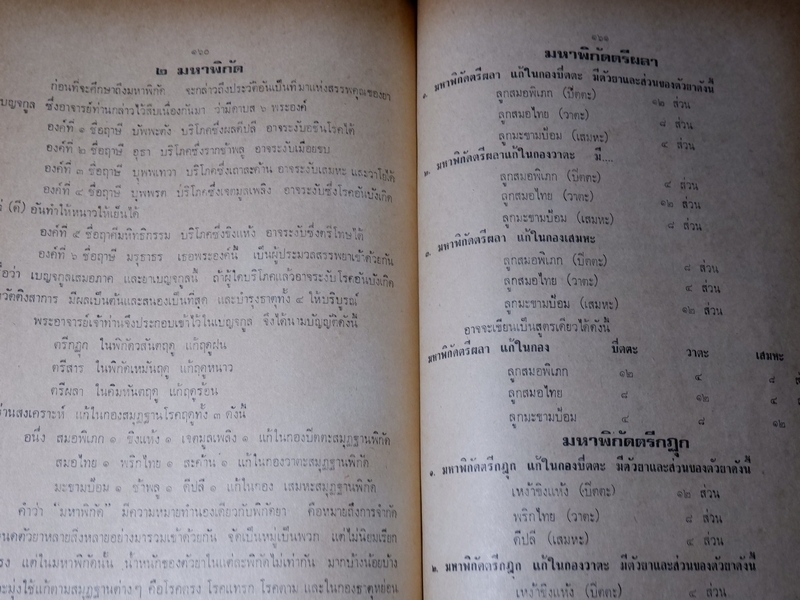 ๑๖๐
๒ มหาพิกัด
ก่อนที่จะศึกษาถึงมหาพิกัด จะกล่าวถึงประวัติอันเป็นที่มาแห่งสรรพคุณของยา
เบญจกูล ซึ่งอาจารย์ท่านกล่าวไว้สืบเนื่องกันมา ว่ามีดาบส ๖ พระองค์
องค์ที่ ๑ ชื่อฤาษี บัพพะตัง บริโภคซึ่งผลดีปลี อาจระงับอชิณโรคได้
องค์ที่ ๒ ชื่อฤาษี อุธา บริโภคซึ่งรากช้าพลู อาจระงับเมื่อยขบ
องค์ที่ ๓ ชื่อฤาษี บุพเทวา บริโภคซึ่งเถาสะค้าน อาจระงับเสมหะ และวาโยได้
องค์ที่ ๔ ชื่อฤาษี บุพพรต บริโภคซึ่งเจตมูลเพลิง อาจระงับซึ่งโรคอันบังเกิด
(ดี) อันทำให้หนาวให้เย็นได้
องค์ที่ ๕ ชื่อฤาษีมหิทธิกรรม บริโภคซึ่งขิงแห้ง อาจระงับซึ่งตรีโทษได้
องค์ที่ ๖ ชื่อฤาษี มุรธาธร เธอพระองค์นี้ เป็นผู้ประมวลสรรพยาเข้าด้วยกัน
ว่า เบญจกูลเสมอภาค และยาเบญจกูลนี้ ถ้าผู้ใดบริโภคแล้วอาจระงับโรคอันบังเกิด
มีผลเป็นต้นและสนองเป็นที่สุด และบำรุงธาตุทั้ง ๔ ให้บริบูรณ์
พระอาจารย์เจ้าท่านจึงประกอบเข้าไว้ในเบญจกูล จึงได้นามบัญญัติดังนี้
ตรีกฏุก ในพิกัดวสันตฤดู แก้ฤดูฝน
ตรีสาร ในพิกัดเหมันฤดู แก้ฤดูหนาว
ตรีผลา ในคิมหันตฤดู แก้ฤดูร้อน
ท่านสงเคราะห์ แก้ในกองสมุฏฐานโรคฤดูทั้ง ๓ ดังนี้
อนึ่ง สมอพิเภก ๑ ขิงแห้ง ๑ เจตมูลเพลิง ๑ แก้ในกองปิตตะสมุฏฐานพิกัด
สมอไทย ๑ พริกไทย ๑ สะค้าน ๑ แก้ในกองวาตะสมุฏฐานพิกัด
มะขามป้อม ๑ ช้าพลู ๑ ดีปลี ๑ แก้ในกอง เสมหะสมุฏฐานพิกัด
คำว่า “มหาพิกัด” มีความหมายทำนองเดียวกับพิกัดยา คือหมายถึงการจำกัด
ตัวยาหลายสิ่งหลายอย่างมารวมเข้าด้วยกัน จัดเป็นหมู่เป็นพวก แต่ไม่นิยมเรียก
ตรง แต่ในมหาพิกัดนั้น น้ำหนักของตัวยาในแต่ละพิกัดไม่เท่ากัน มากบ้างน้อยบ้าง
มุ่งใช้แก้ตามสมุฏฐานต่างๆ คือโรคตรง โรคแทรก โรคตาม และในกองธาตุหย่อน
๑๖๑
มหาพิกัดตรีผลา
๑. มหาพิกัดตรีผลา แก้ในกองปิตตะ มีตัวยาและส่วนของตัวยาดังนี้
ลูกสมอพิเภก (ปิตตะ) ๑๒ ส่วน
ลูกสมอไทย (วาตะ) ๘ ส่วน
ลูกมะขามป้อม (เสมหะ) ๔ ส่วน
๒. มหาพิกัดตรีผลาแก้ในกองวาตะ มี....
ลูกสมอพิเภก (ปิตตะ) ๔ ส่วน
ลูกสมอไทย (วาตะ) ๑๒ ส่วน
ลูกมะขามป้อม (เสมหะ) ๘ ส่วน
๓. มหาพิกัดตรีผลา แก้ในกองเสมหะ
ลูกสมอพิเภก (ปิตตะ) ๘ ส่วน
ลูกสมอไทย (วาตะ) ๔ ส่วน
ลูกมะขามป้อม (เสมหะ) ๑๒ ส่วน
อาจจะเขียนเป็นสูตรเดียวได้ดังนี้
มหาพิกัดตรีผลา แก้ในกอง ปิตตะ วาตะ เสมหะ
ลูกสมอพิเภก ๑๒ ๔ ๘
ลูกสมอไทย ๘ ๑๒ ๔
ลูกมะขามป้อม ๔ ๘ ๑๒
มหาพิกัดตรีกฏุก
๑. มหาพิกัดตรีกฏุก แก้ในกองปิตตะ มีตัวยาและส่วนของตัวยาดังนี้
เหง้าขิงแห้ง (ปิตตะ) ๑๒ ส่วน
พริกไทย (วาตะ) ๘ ส่วน
ดีปลี (เสมหะ) ๔ ส่วน
๒. มหาพิกัดตรีกฏุก แก้ในกองวาตะ มีตัวยาและส่วนของตัวยาดังนี้
เหง้าขิงแห้ง (ปิตตะ) ๔ ส่วน